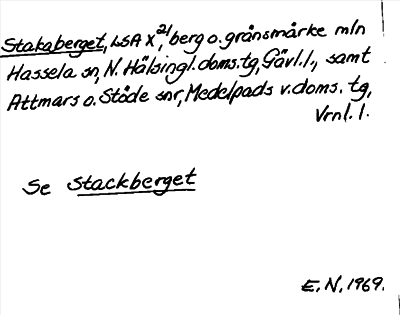 Stakaberget, LSA X, 21/ berg o. gränsmärke mln
Hassela sn, N. Hälsingl. doms. tg, Gävl. l., samt
Attmars o. Stöde snr, Medelpads v. doms. tg,
Vrnl. l.
Se Stackberget
E. N. 1969.